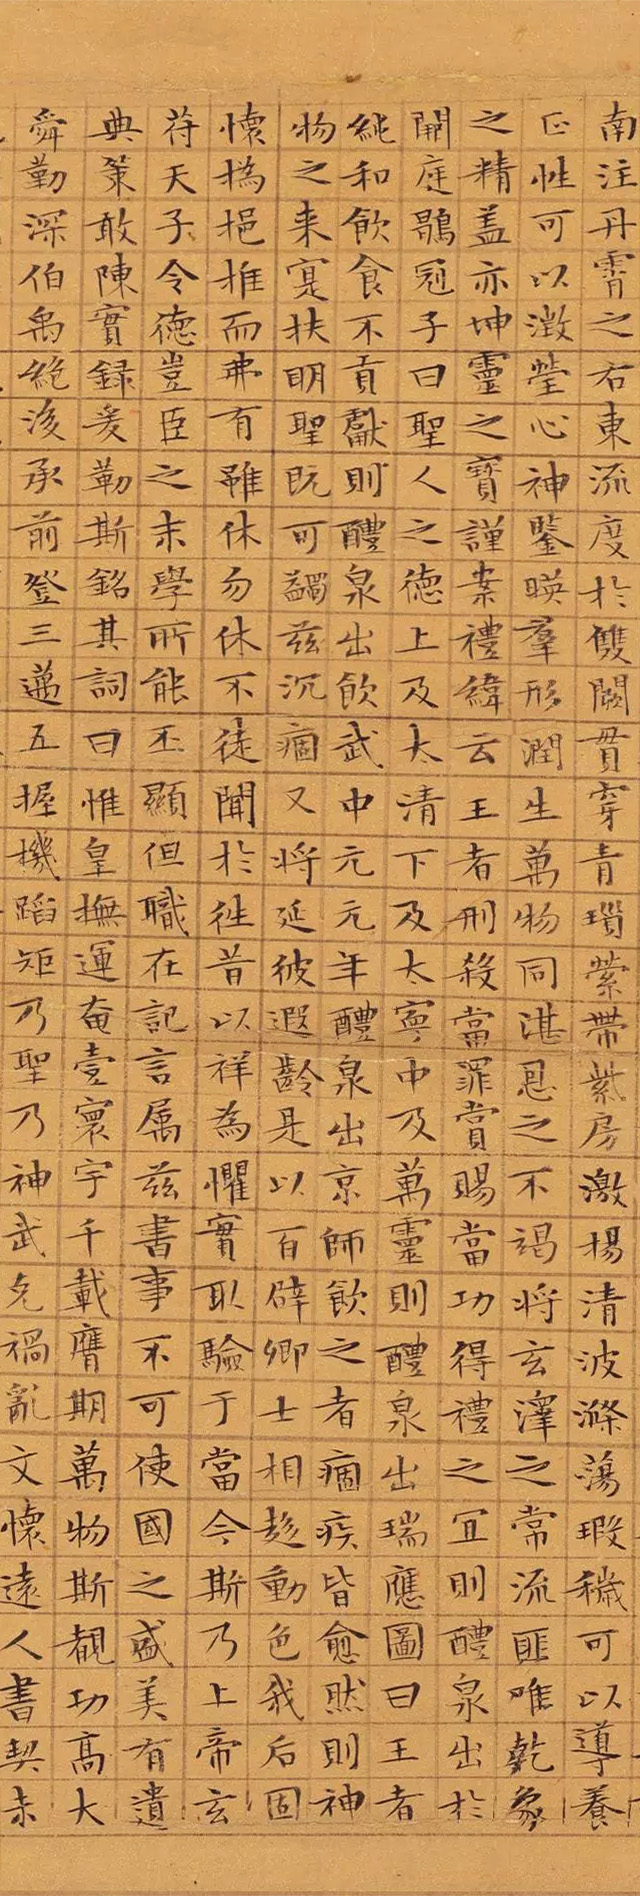 南注丹霄之右東流度於雙闕貫穿青瑣縈帶紫房激揚清波滌蕩瑕穢可以導養
正性可以澂瑩心神鑒暎羣形潤生萬物同湛恩之不竭将玄澤之常流匪唯乾象
之精盖亦坤靈之寶謹案禮緯云王者刑殺當罪賞賜當功得禮之宜則醴泉出於
開庭鶡冠子曰聖人之德上及太清下及太寧中及萬靈則醴泉出瑞應圖曰王者
純和飲食不貢獻則醴泉出飲武中元元年醴泉出京師飲之者痼疾皆愈然則神
物之来寔扶明聖既可蠲兹沉痼又将延彼遐齡是以百辟卿士相趍動色我后固
懷撝挹推而弗有雖休勿休不徒聞於徃昔以祥為懼實取驗于當今斯乃上帝玄
符天子令徳豈臣之末學所能丕顯但職在記言属兹書事不可使國之盛美有遺
典策敢陳實録爰勒斯銘其詞曰惟皇撫運奄壹寰宇千載膺期萬物斯覩功高大
舜勤深伯禹絶後承前登三邁五握機蹈矩乃聖乃神武克禍亂文懷遠人書契未